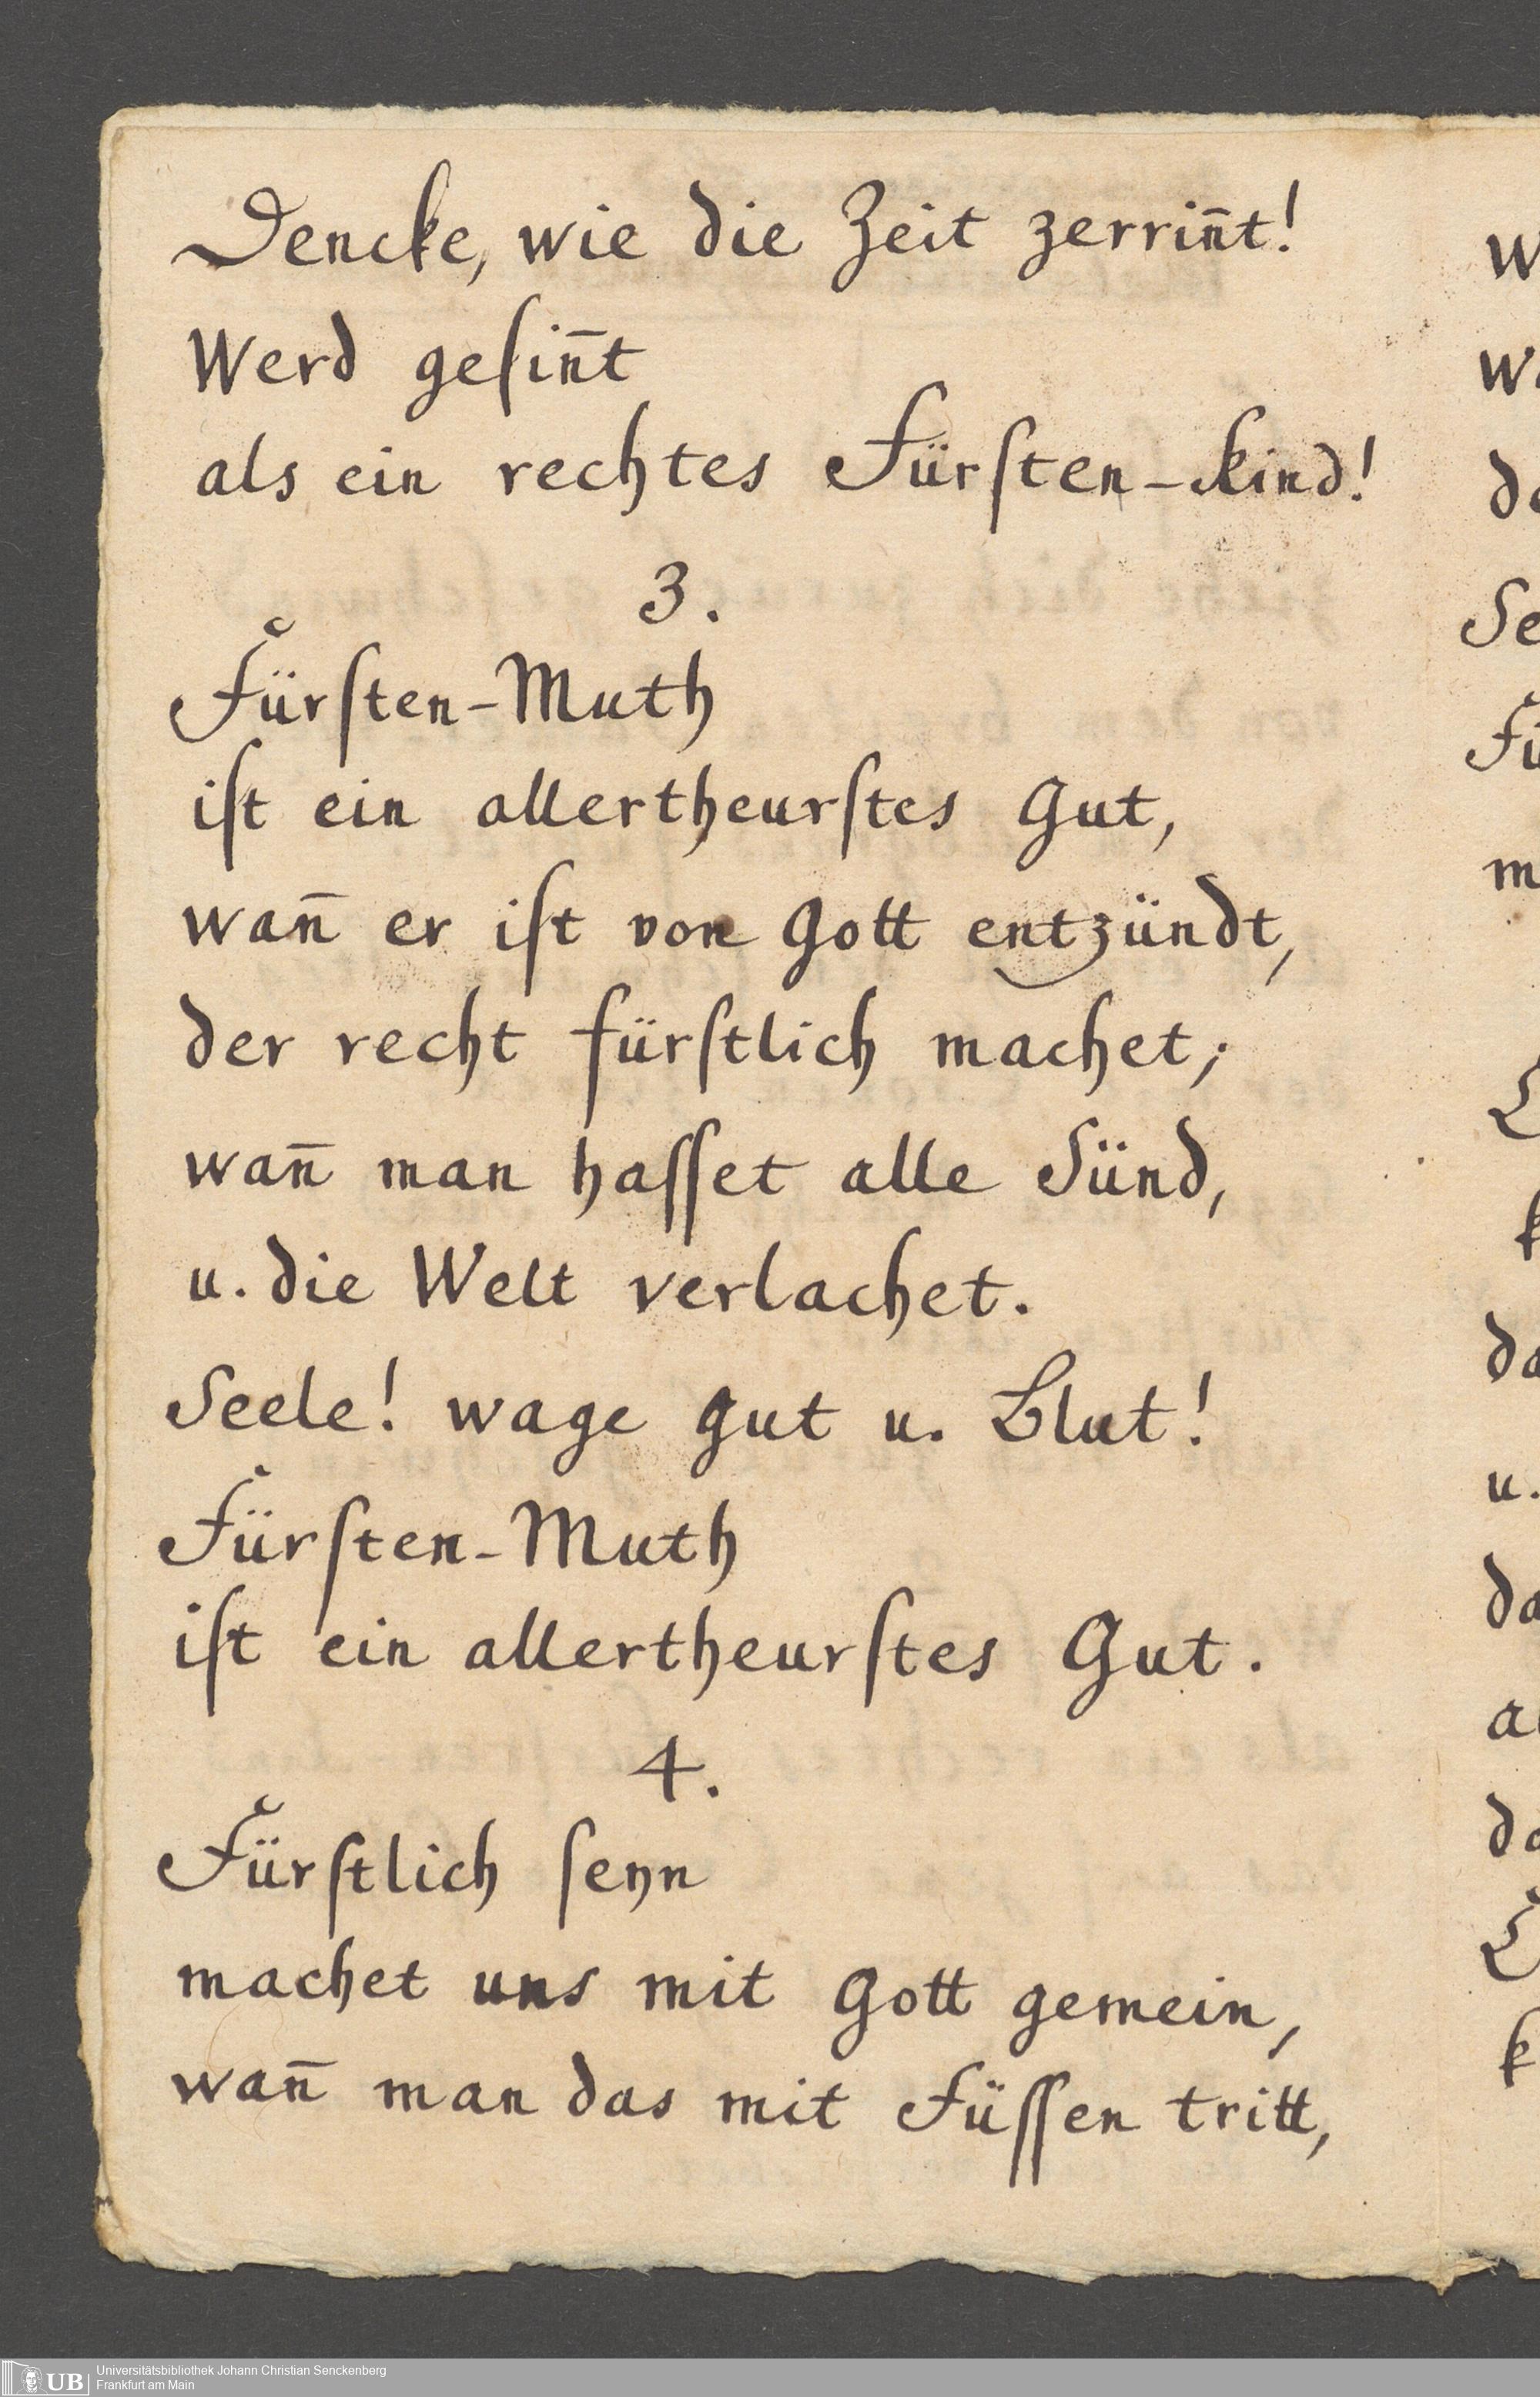 Dencke, wie die Zeit zerrin̄t!
Werd geſin̄t
als ein rechtes Fürſten-Kind!
3.
Fürſten-Muth
iſt ein allertheurſtes Gut,
wan̄ er iſt von Gott entzündt,
der recht fürſtlich machet;
wan̄ man haſſet alle Sünd,
u. die Welt verlachet.
Seele! wage gut u. Blut!
Fürſten-Muth
iſt ein allertheurſtes Gut.
4.
Fürſtlich ſeyn
machet uns mit Gott gemein,
wan̄ man das mit Füſſen tritt,
UB
Universitätsbibliothek Johann Christian Senckenberg
Frankfurt am Main